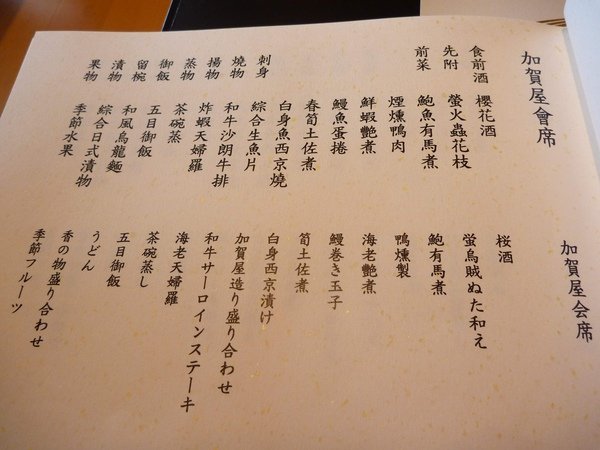 加賀屋會席
食前酒 櫻花酒
先附 螢火蟲花枝
前菜 鮑魚有馬煮
煙燻鴨肉
鮮蝦艷煮
鰻魚蛋捲
春筍土佐煮
白身魚西京燒
刺身 綜合生魚片
燒物 和牛沙朗牛排
揚物 炸蝦天婦羅
蒸物 茶碗蒸
御飯 五目御飯
留椀 和風烏龍麵
漬物 綜合日式漬物
果物 季節水果
加賀屋会席
桜酒
蛍烏賊ぬた和え
鮑有馬煮
鴨燻製
海老艶煮
鰻巻き玉子
筍土佐煮
白身西京漬け
加賀屋造り盛り合わせ
和牛サーロインステーキ
海老天婦羅
茶碗蒸し
五目御飯
うどん
香の物盛り合わせ
季節フルーツ